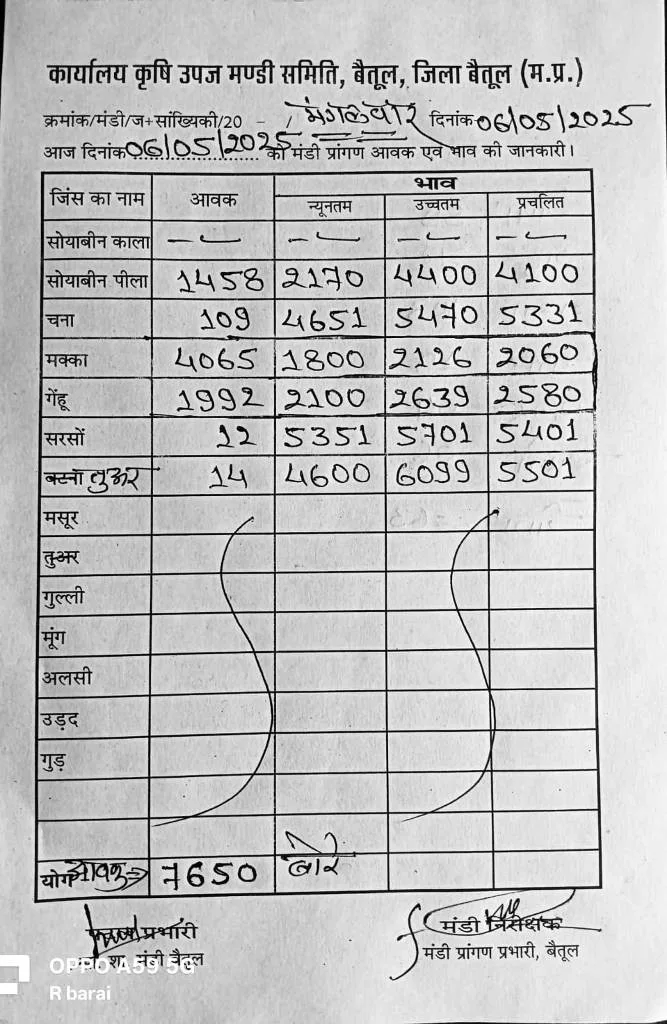 कार्यालय कृषि उपज मण्डी समिति, बैतूल, जिला बैतूल (म.प्र.)
क्रमांक/मंडी/ज+सांख्यिकी/20 - / मंगलवार दिनांक 06/05/2025
आज दिनांक 06/05/2025 को मंडी प्रांगण आवक एवं भाव की जानकारी।
जिंस का नाम आवक भाव
न्यूनतम उच्चतम प्रचलित
सोयाबीन काला — — — —
सोयाबीन पीला 1458 2170 4400 4100
चना 109 4651 5470 5331
मक्का 4065 1800 2126 2060
गेंहू 1992 2100 2639 2580
सरसों 12 5351 5701 5401
तुअर 14 4600 6099 5501
मसूर
तुअर
गुल्ली
मूंग
अलसी
उड़द
गुड़
योग आवक 7650 बोरे
प्रभारी मंडी निरीक्षक
शा. मंडी बैतूल मंडी प्रांगण प्रभारी, बैतूल
OPPO A59 5G
R barai